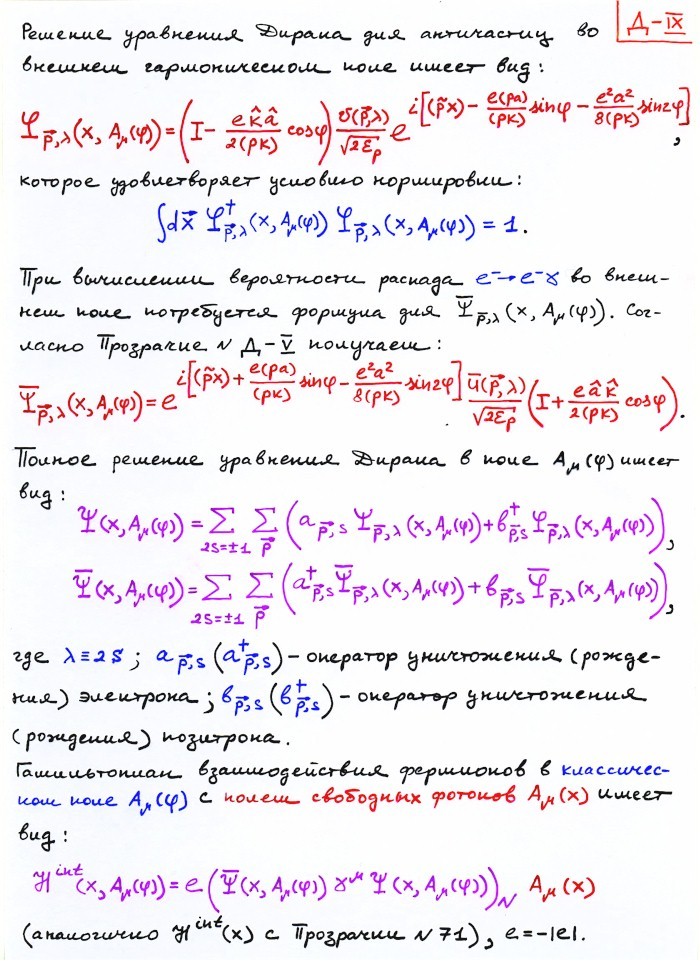 Решение уравнения Дирака для античастиц во Д-IX
внешнем гармоническом поле имеет вид:
φ_{p⃗,λ}(x, A_μ(φ)) = (I - \frac{e k̂ â}{2(pk)} cosφ) \frac{v(p⃗,λ)}{√{2ε_p}} e^{i[(p̃x) - \frac{e(pa)}{(pk)} sinφ - \frac{e²a²}{8(pk)} sin2φ]},
которое удовлетворяет условию нормировки:
∫dx⃗ φ†_{p⃗,λ}(x, A_μ(φ)) φ_{p⃗,λ}(x, A_μ(φ)) = 1.
При вычислении вероятности распада e⁻→e⁻γ во внеш-
нем поле потребуется формула для Ψ̄_{p⃗,λ}(x, A_μ(φ)). Сог-
ласно Прозрачке N Д-V получаем:
Ψ̄_{p⃗,λ}(x, A_μ(φ)) = e^{i[(p̃x) + \frac{e(pa)}{(pk)} sinφ - \frac{e²a²}{8(pk)} sin2φ]} \frac{ū(p⃗,λ)}{√{2ε_p}} (I + \frac{e â k̂}{2(pk)} cosφ).
Полное решение уравнения Дирака в поле A_μ(φ) имеет
вид:
Ψ(x, A_μ(φ)) = Σ_{2s=±1} Σ_{p⃗} (a_{p⃗,s} Ψ_{p⃗,λ}(x, A_μ(φ)) + b†_{p⃗,s} φ_{p⃗,λ}(x, A_μ(φ))),
Ψ̄(x, A_μ(φ)) = Σ_{2s=±1} Σ_{p⃗} (a†_{p⃗,s} Ψ̄_{p⃗,λ}(x, A_μ(φ)) + b_{p⃗,s} φ̄_{p⃗,λ}(x, A_μ(φ))),
где λ≡2s; a_{p⃗,s}(a†_{p⃗,s}) – оператор уничтожения (рожде-
ния) электрона; b_{p⃗,s}(b†_{p⃗,s}) – оператор уничтожения
(рождения) позитрона.
Гамильтониан взаимодействия фермионов в классичес-
ком поле A_μ(φ) с полем свободных фотонов A_μ(x) имеет
вид:
ℋ^{int}(x, A_μ(φ)) = e (Ψ̄(x, A_μ(φ)) γ^μ Ψ(x, A_μ(φ)))_N A_μ(x)
(аналогично ℋ^{int}(x) с Прозрачки N 71), e=-|e|.